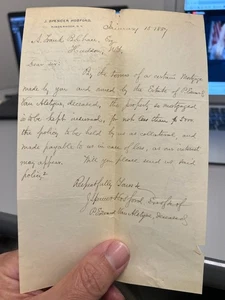 January 15 1897
A. Frank B. Chace, Esq.
Hudson, N.Y.
Dear Sir:
By the terms of a certain Mortgage
made by you and owned by the Estate of P. Edward
Van Alstyne, deceased, the property so mortgaged
is to be kept insured, for not less than $
the policy to be held by us as collateral, and
made payable to us in case of loss, as our interest
may appear.
Will you please send us said
policy?
Respectfully Yours
Executors of
P. Edward Van Alstyne, deceased